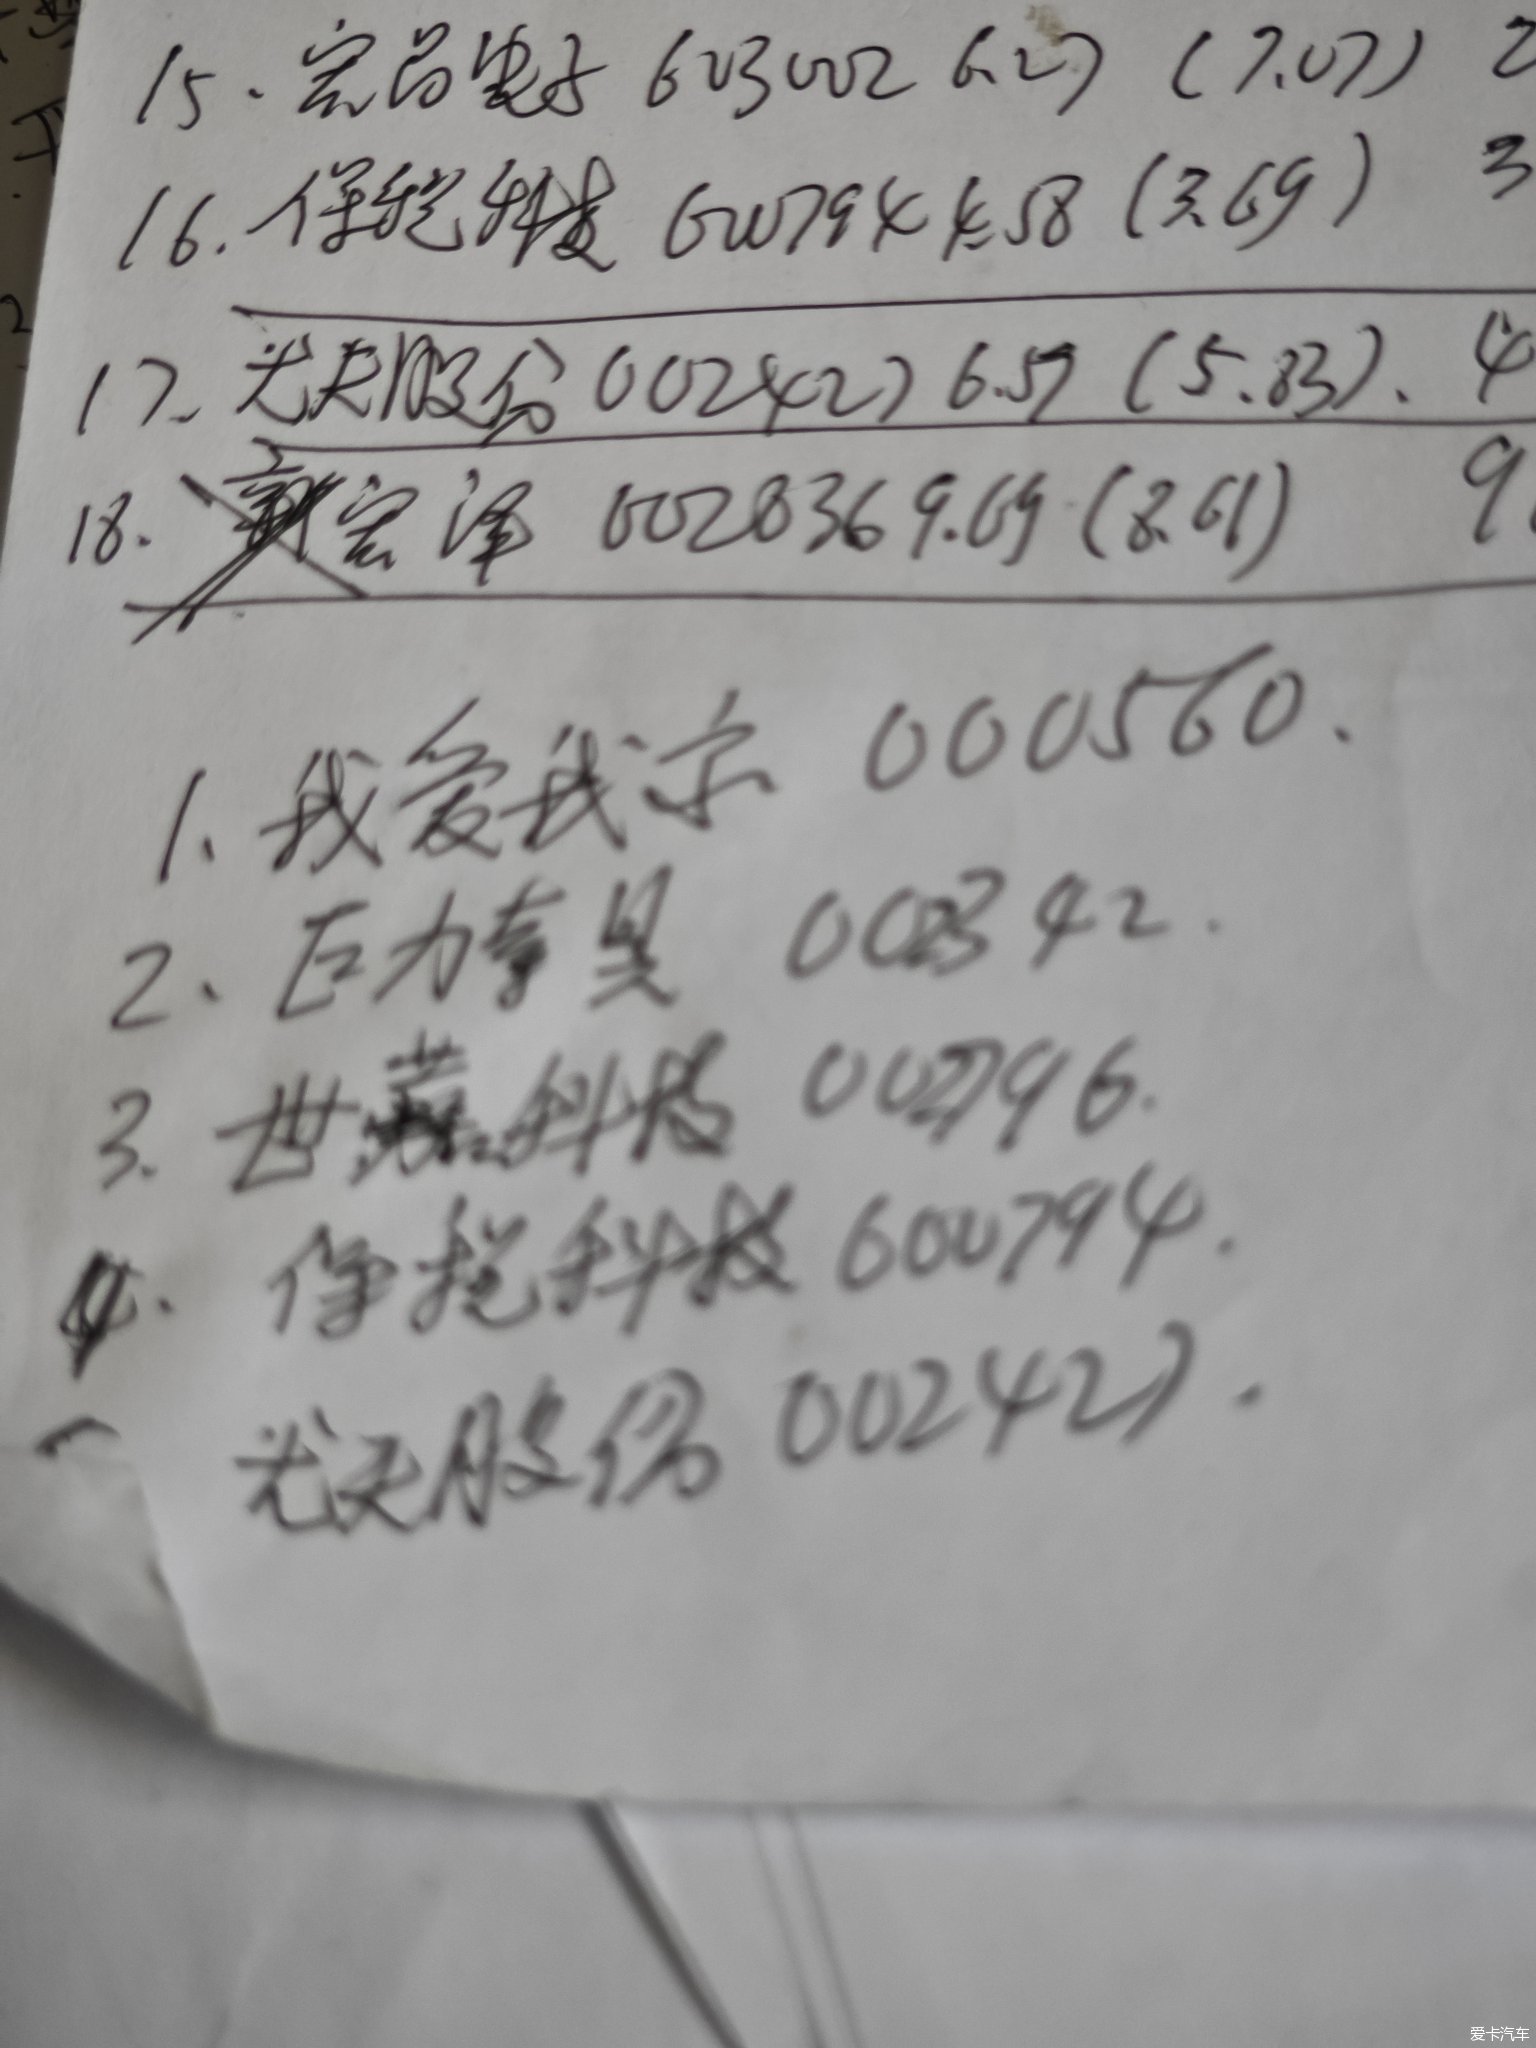 15. 宏昌电子 603002 6.27 (7.07) 2
16. 保税科技 600794 4.58 (3.69) 3
17. 尤夫股份 002427 6.57 (5.83). 4
18. 新宏泽 002836 9.69 (8.61) 9
1. 我爱我家 000560.
2. 巨力索具 002342.
3. 世嘉科技 002796.
4. 保税科技 600794.
尤夫股份 002427.
爱卡汽车